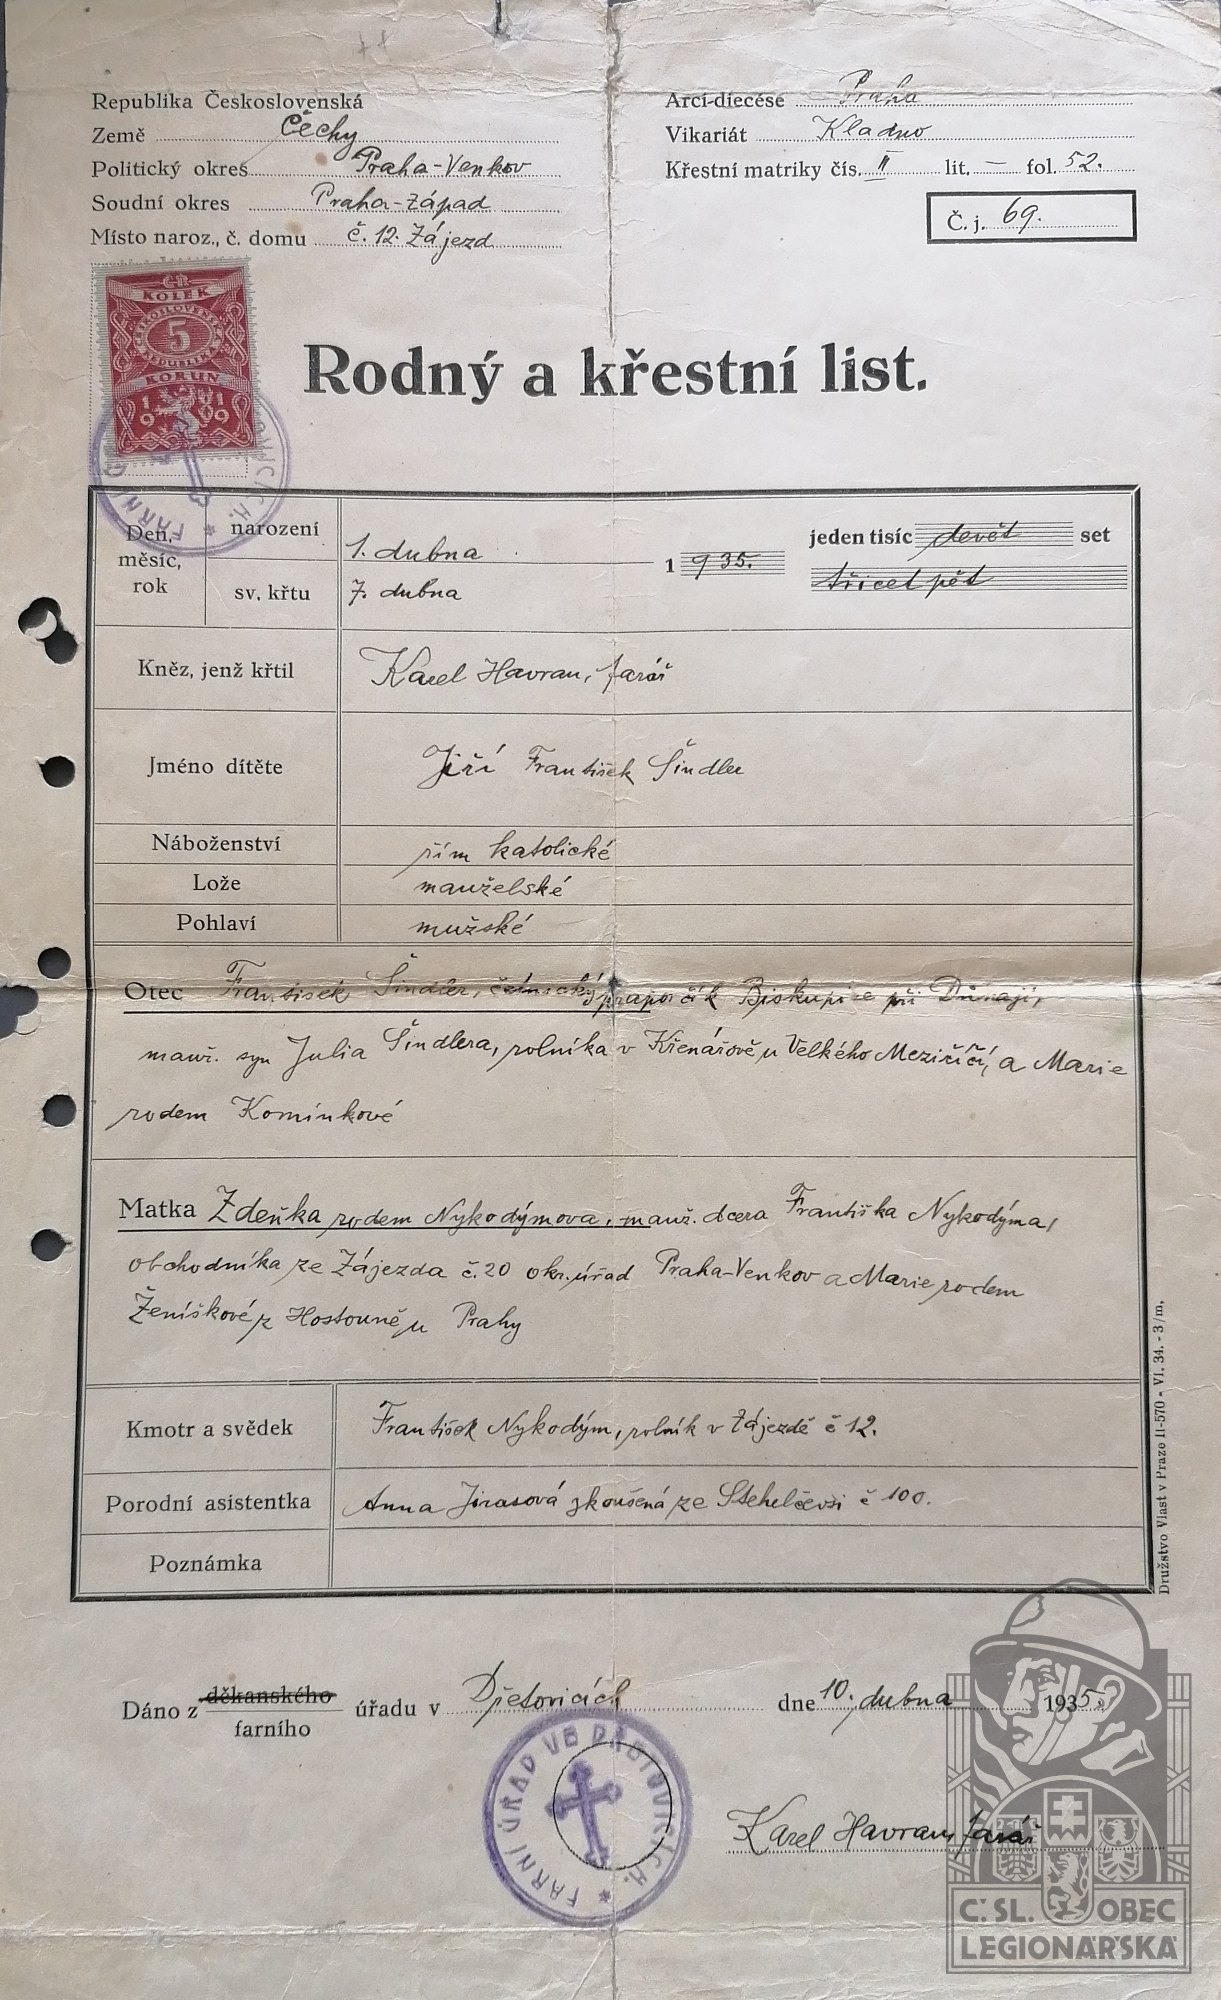 Republika Československá
Země Čechy
Politický okres Praha-Venkov
Soudní okres Praha-západ
Místo naroz., č. domu č. 12. Zájezd
Arci-diecése Praha
Vikariát Kladno
Křestní matriky čís. II lit. — fol. 52.
Č. j. 69.
ČR
KOLEK
5
KORUN
1919
Rodný a křestní list.
Den, měsíc, rok
narození 1. dubna
sv. křtu 7. dubna
1935.
jeden tisíc devět set
třicet pět
Kněz, jenž křtil Karel Havran, farář
Jméno dítěte Jiří František Šindler
Náboženství řím katolické
Lože manželské
Pohlaví mužské
Otec František Šindler, četnický praporčík Biskupice při Dunaji,
manž. syn Julia Šindlera, rolníka v Křenářově u Velkého Meziříčí, a Marie
rodem Komínkové
Matka Zdeňka rodem Nykodýmova, manž. dcera Františka Nykodýma,
obchodníka ze Zájezda č. 20 okr. úřad Praha-Venkov a Marie rodem
Ženíškové z Hostouně u Prahy
Kmotr a svědek František Nykodým, rolník v Zájezdě č 12.
Porodní asistentka Anna Jirasová zkoušená ze Stehelčevsi č 100.
Poznámka
Družstvo Vlast v Praze II-570 - VI. 34. - 3/m,
Dáno z děkanského
farního
úřadu v Dřetovicích dne 10. dubna 1935.
FARNÍ ÚŘAD VE DŘETOVICÍCH.
Karel Havran, farář
Č.SL. OBEC
LEGIONÁŘSKÁ